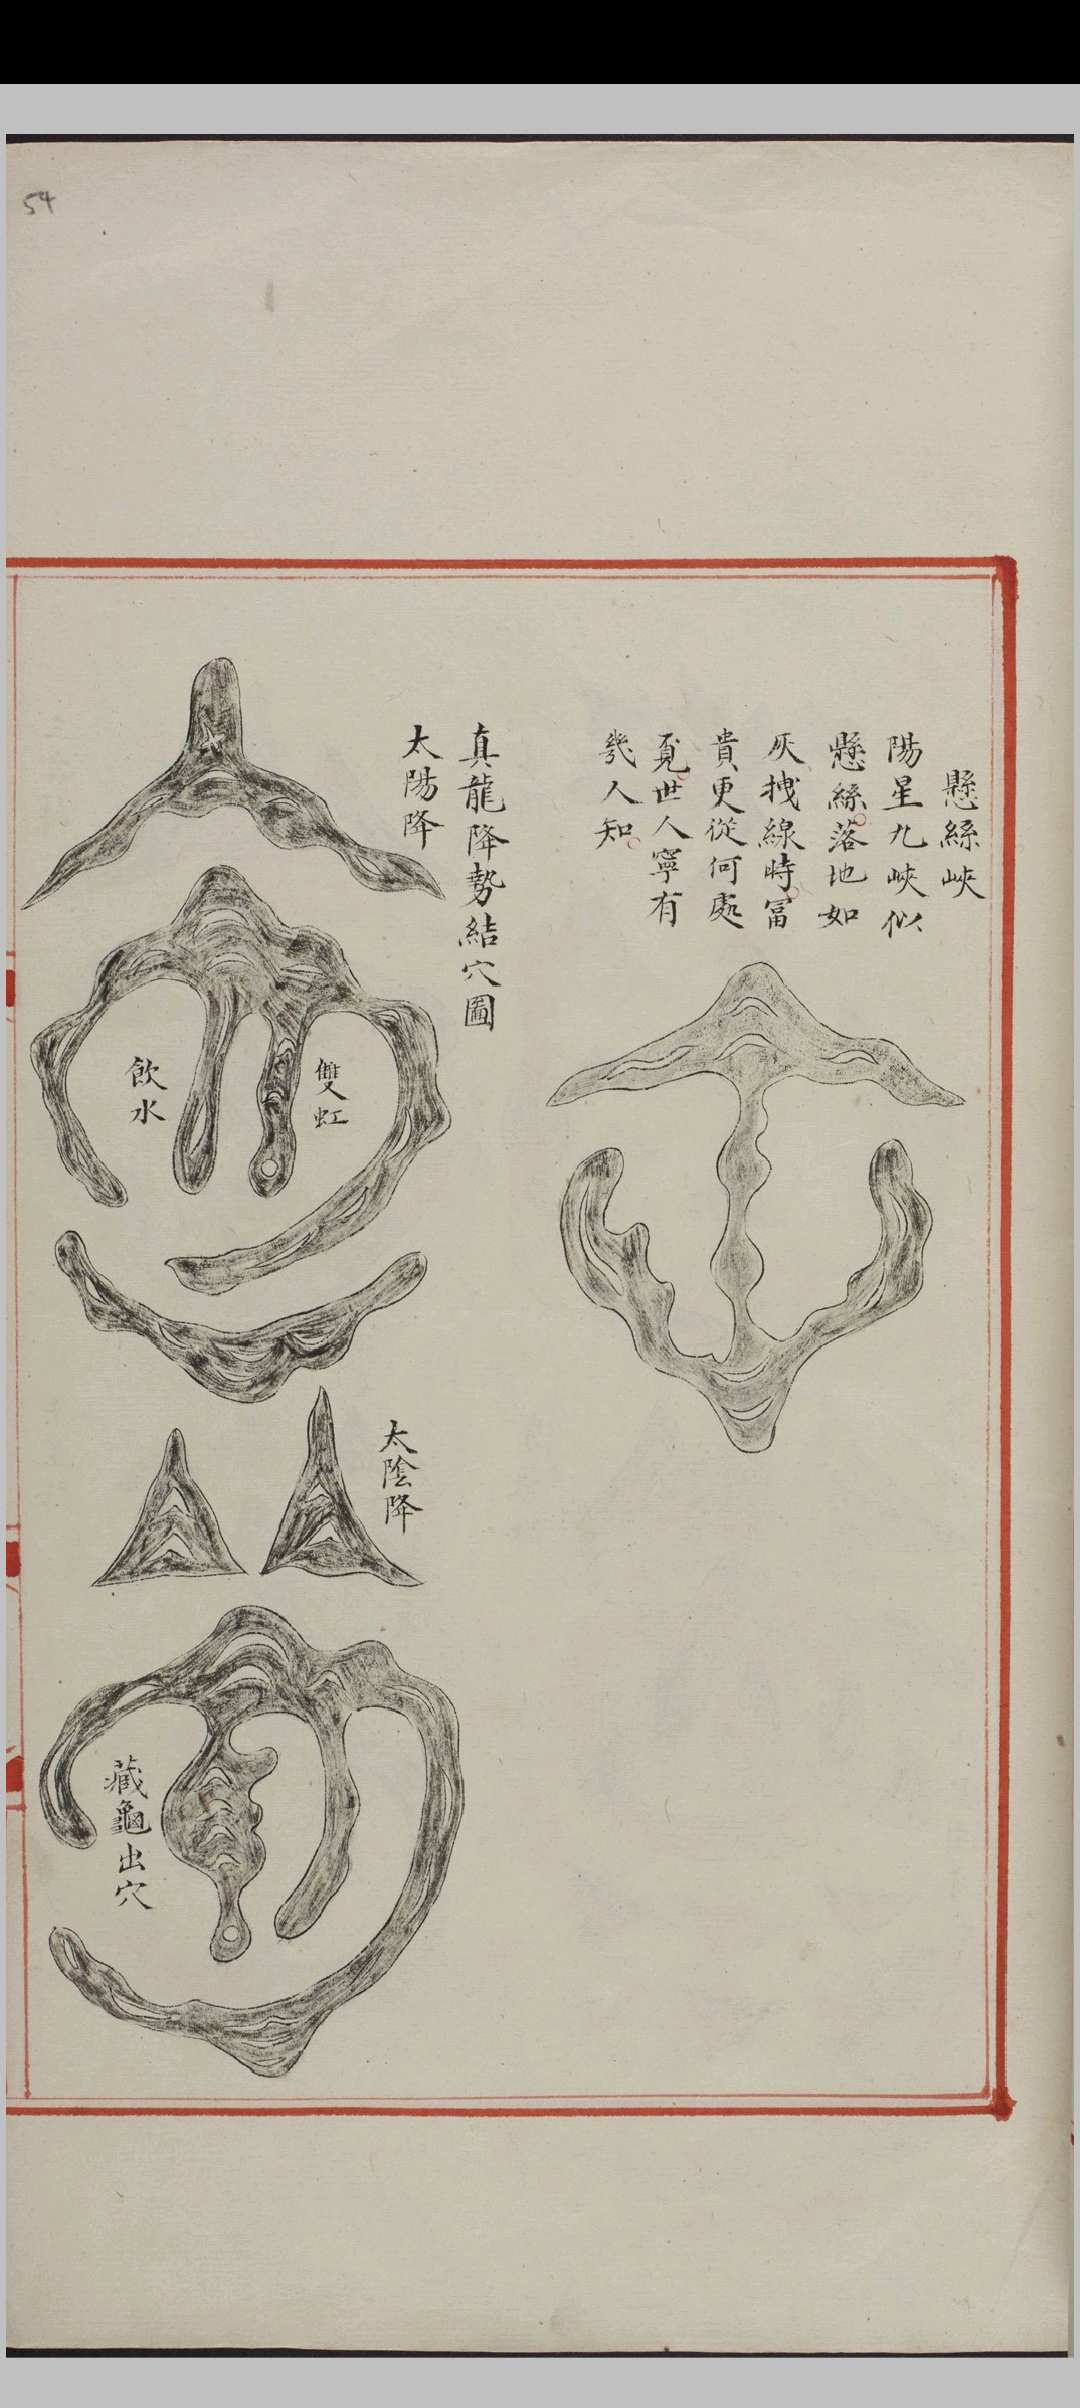 54
懸絲峽
陽星九峽似
懸絲落地如
灰拽線時冨
貴更從何處
覓世人寧有
幾人知
真龍降勢結穴圖
太陽降
雙虹
飲水
太陰降
藏龜出穴